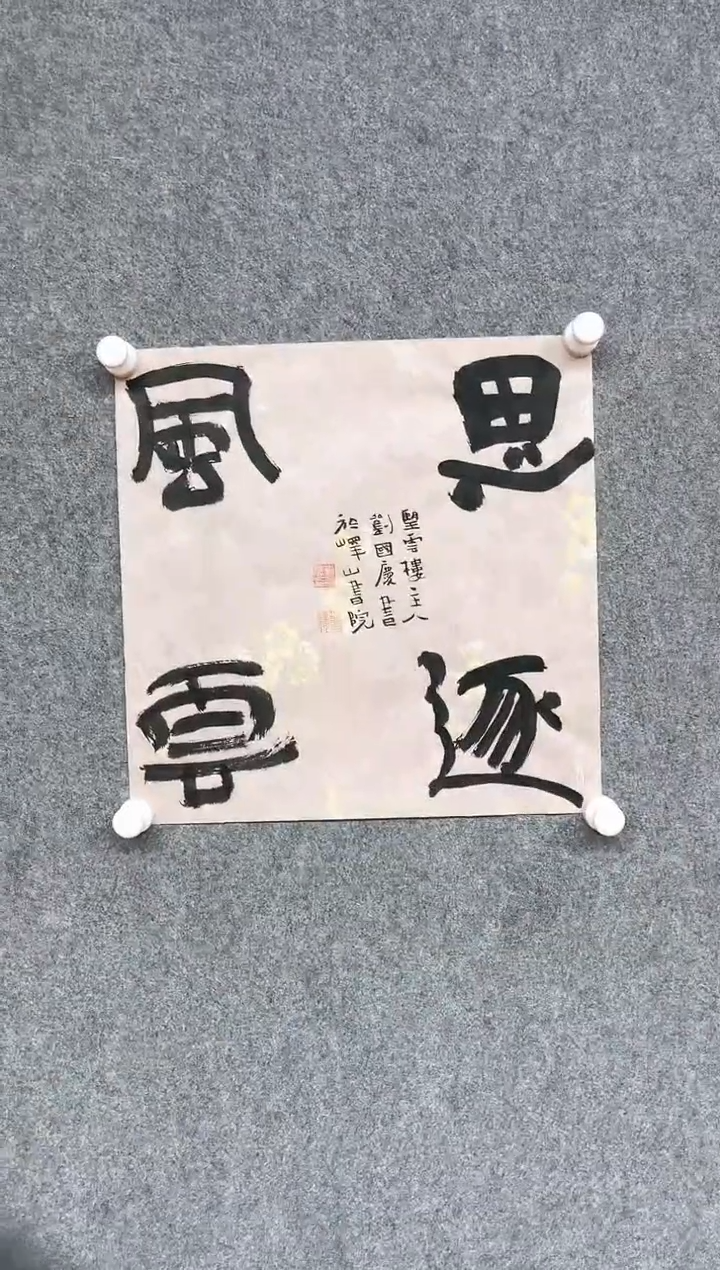 思逐
風雲
望雲樓主人
劉國慶書
於嶧山書院